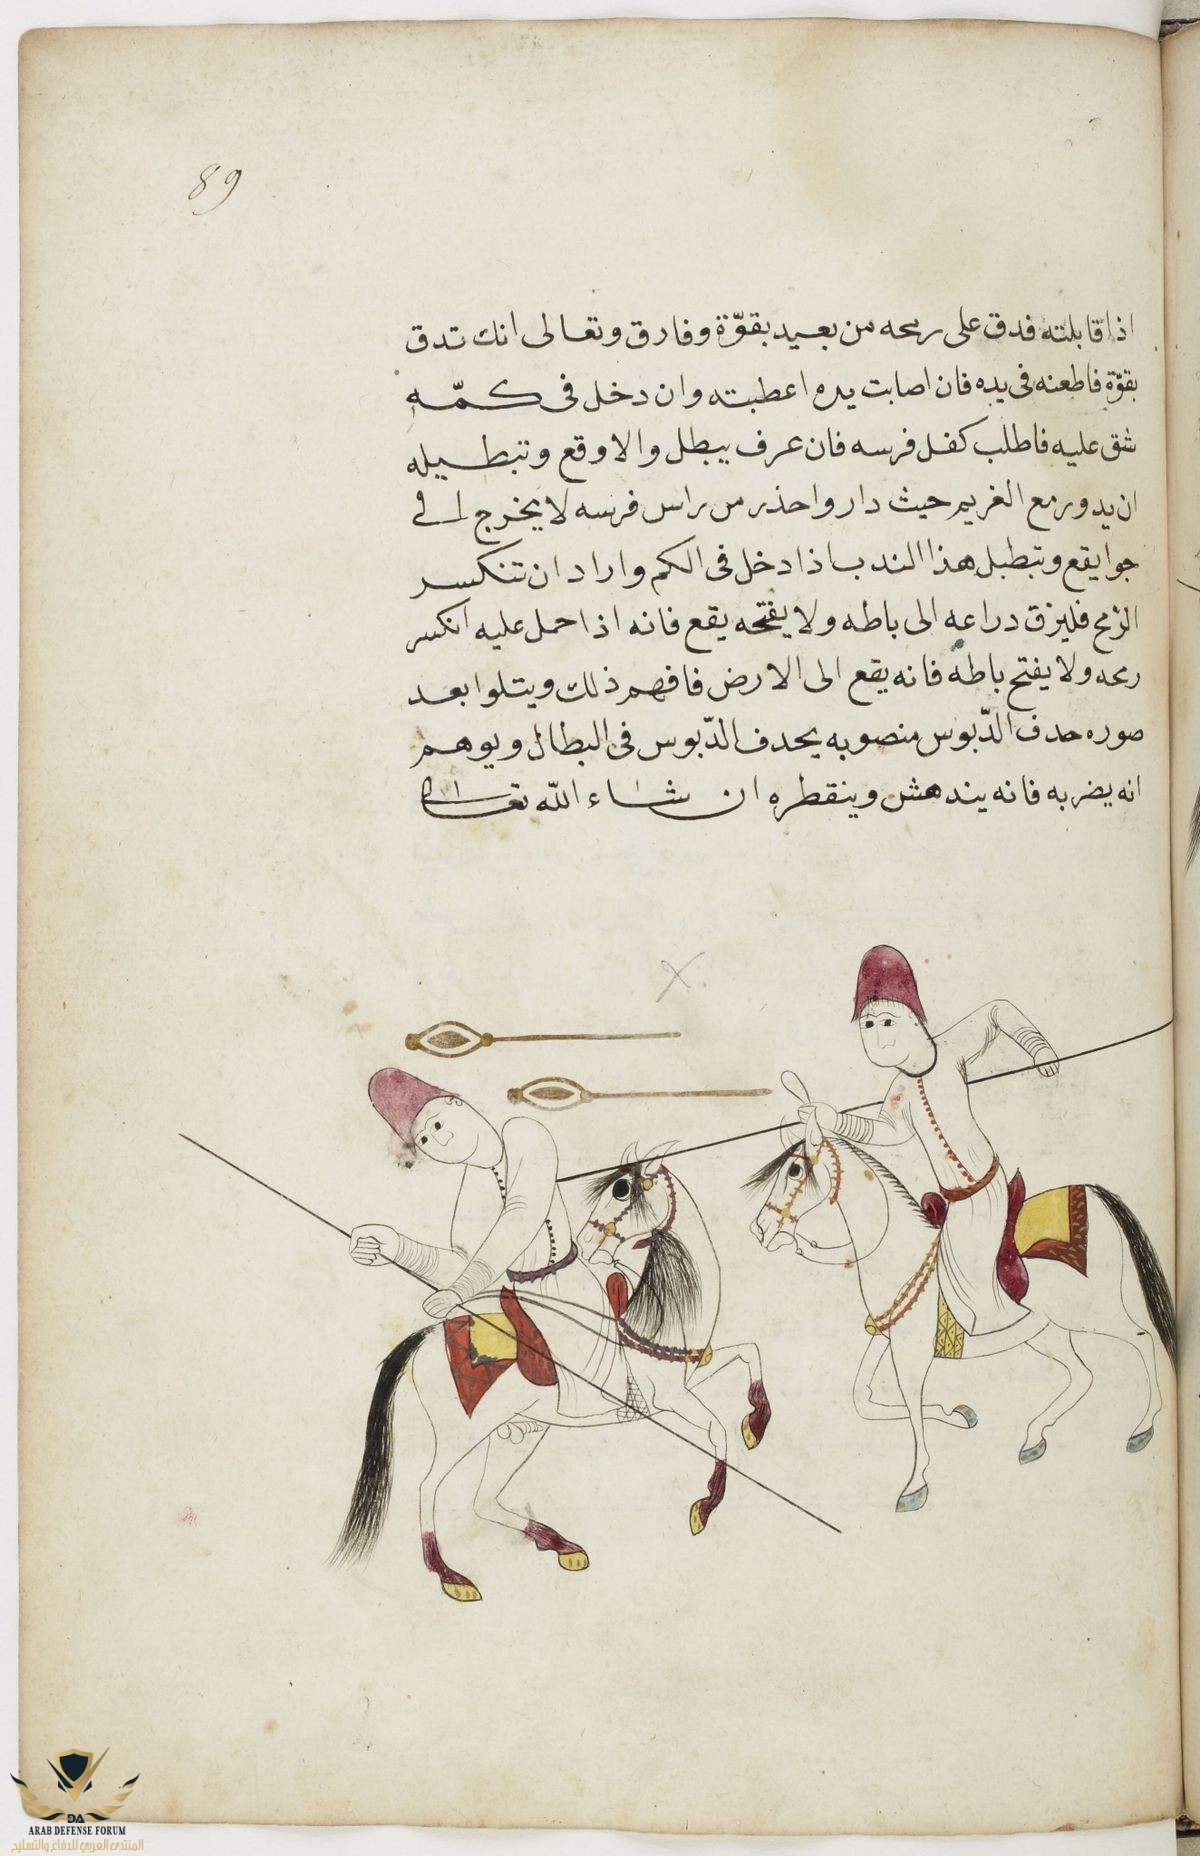 89
اذا قابلته فدق على رمحه من بعيد بقوّة وفارق وتعالى انك تدق
بقوّة فاطعنه فى يده فان اصابت يده اعطبته وان دخل فى كمّه
شق عليه فاطلب كفل فرسه فان عرف يبطل والا وقع وتبطيله
ان يدور مع الغريم حيث دار واحذر من راس فرسه لا يخرج الى
جوا يقع وتبطيل هذا الندب اذا دخل فى الكم واراد ان تنكسر
الرمح فليزق دراعه الى باطه ولا يفتحه يقع فانه اذا حمل عليه انكسر
رمحه ولا يفتح باطه فانه يقع الى الارض فافهم ذلك ويتلوا بعد
صوره حدف الدّبوس منصوبه يحدف الدّبوس فى البطال ويوهم
انه يضربه فانه يندهش وينقطره ان شاء الله تعالى
DA
ARAB DEFENSE FORUM
المنتدى العربي للدفاع والتسليح